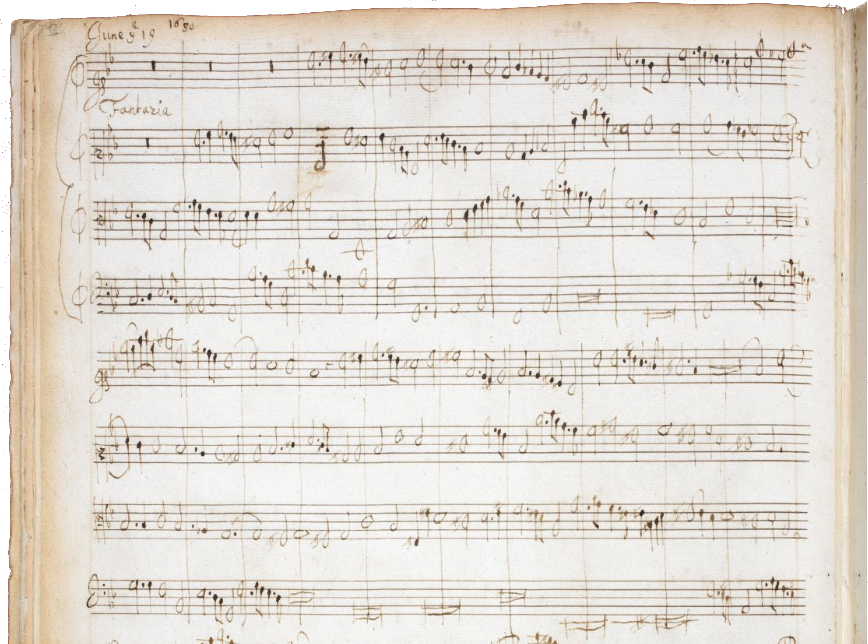 June yᵉ 19 1680
Fantazia